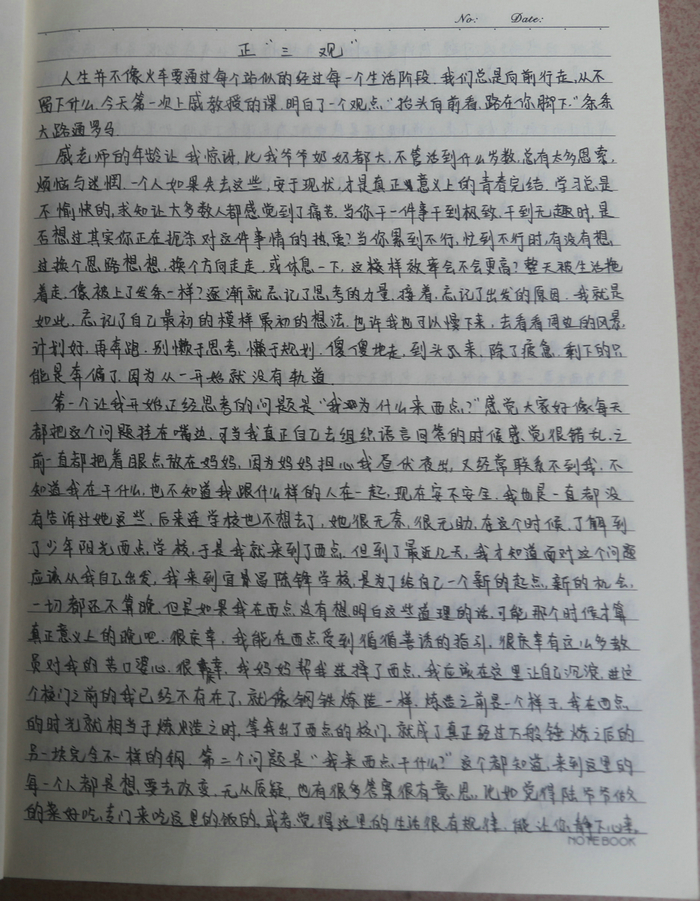 No: Date:
正“三 观”
人生并不像火车要通过每个站似的经过每一个生活阶段，我们总是向前行走，从不
留下什么。今天第一次上戚教授的课，明白了一个观点“抬头向前看，路在你脚下。”条条
大路通罗马。
戚老师的年龄让我惊讶，比我爷爷奶奶都大，不管活到什么岁数，总有太多思索，
烦恼与迷惘。一个人如果失去这些，安于现状，才是真正意义上的青春完结。学习总是
不愉快的，求知让大多数人都感觉到了痛苦。当你干一件事干到极致，干到无趣时，是
否想过其实你正在扼杀对这件事情的热爱？当你累到不行，忙到不行时，有没有想
过换个思路想想，换个方向走走，或休息一下，这样效率会不会更高？整天被生活拖
着走，像被上了发条一样？逐渐就忘记了思考的力量，接着，忘记了出发的原因。我就是
如此，忘记了自己最初的模样最初的想法，也许我也可以慢下来，去看看周边的风景，
计划好，再奔跑。别懒于思考，懒于规划，傻傻地走，到头来，除了疲惫，剩下的只
能是奔偏了，因为从一开始就没有轨道。
第一个让我开始正经思考的问题是“我为什么来西点？”感觉大家好像每天
都把这个问题挂在嘴边，可当我真正自己去组织语言回答的时候感觉很错乱，之
前一直都把着眼点放在妈妈，因为妈妈担心我昼伏夜出，又经常联系不到我，不
知道我在干什么，也不知道我跟什么样的人在一起，现在安不安全，我也是一直都没
有告诉过她这些，后来连学校也不想去了，她很无奈，很无助，在这个时候，了解到
了少年阳光西点学校，于是我就来到了西点。但到了最近几天，我才知道面对这个问题
应该从我自己出发，我来到宜昌陈锋学校是为了给自己一个新的起点，新的机会。
一切都还不算晚，但是如果我在西点没有想明白这些道理的话，可能那个时候才算
真正意义上的晚吧。很庆幸，我能在西点受到循循善诱的指引，很庆幸有这么多教
员对我的苦口婆心，很庆幸，我妈妈帮我选择了西点，我应该在这里让自己沉淀，进这
个校门之前的我已经不存在了，就像钢铁炼造一样，炼造之前是一个样子，我在西点
的时光就相当于炼造之时，等我出了西点的校门，就成了真正经过万般锤炼之后的
另一块完全不一样的钢。第二个问题是“我来西点干什么？”这个都知道，来到这里的
每一个人都是想要去改变，无从质疑，也有很多答案很有意思，比如觉得陆爷爷做
的菜好吃，专门来吃这里的饭的，或者觉得这里的生活很有规律，能让你静下心来，
NOTEBOOK